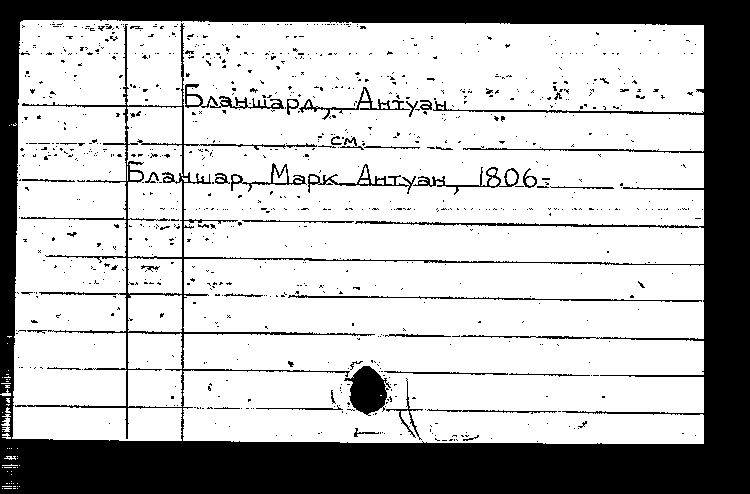 Бланшард, Антуан
см.
Бланшар, Марк Антуан, 1806-